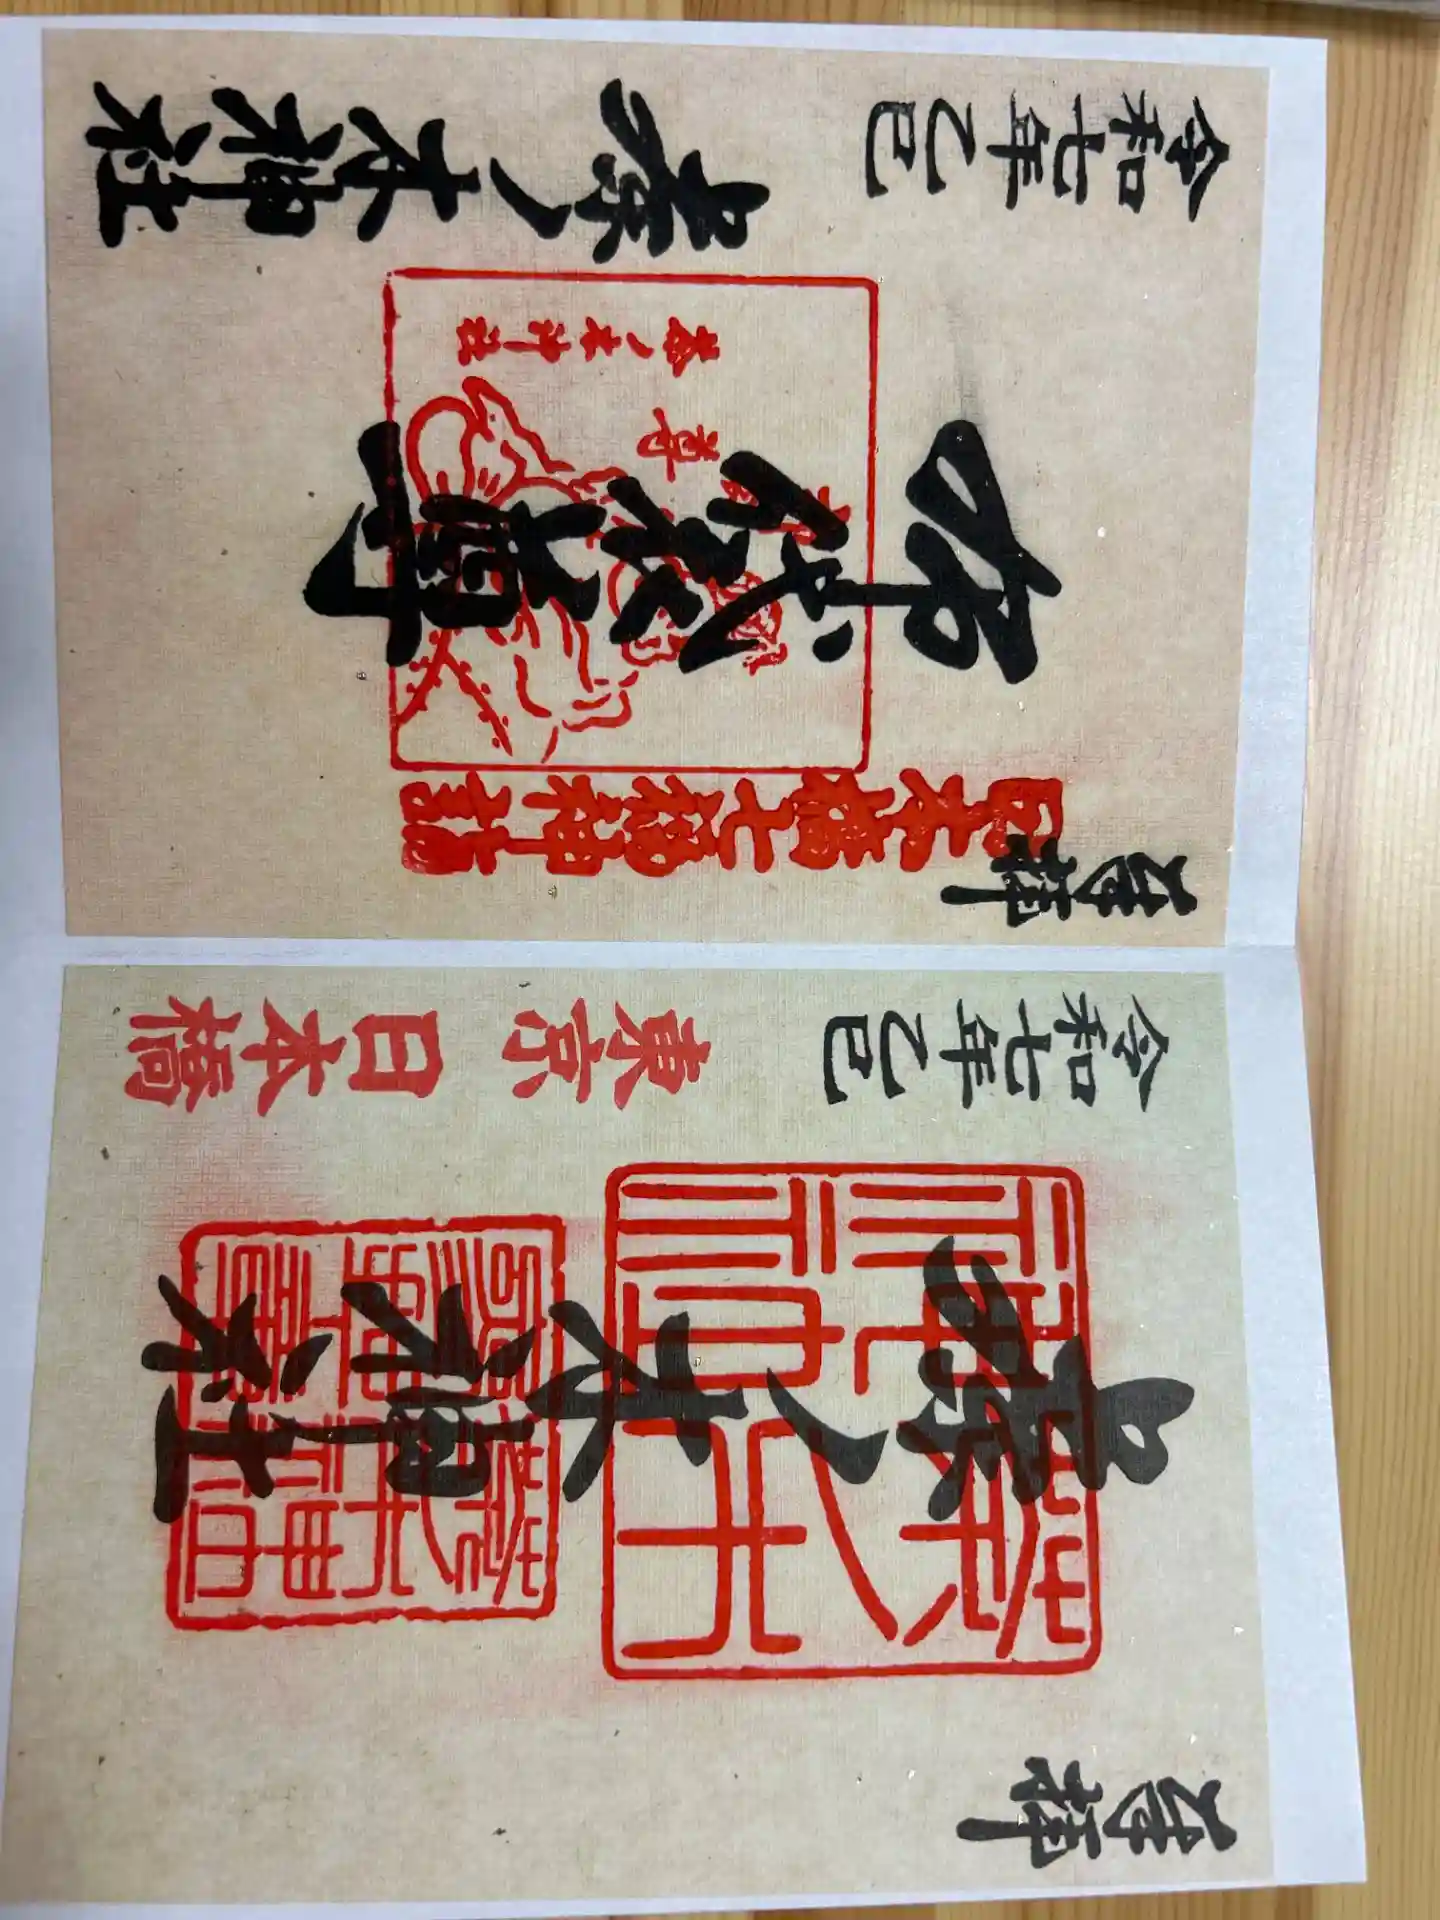 奉拝
茶ノ木神社
令和七年乙巳
東京日本橋
奉拝
日本橋七福神詣
布袋尊
布袋尊
茶ノ木神社
令和七年乙巳
茶ノ木神社